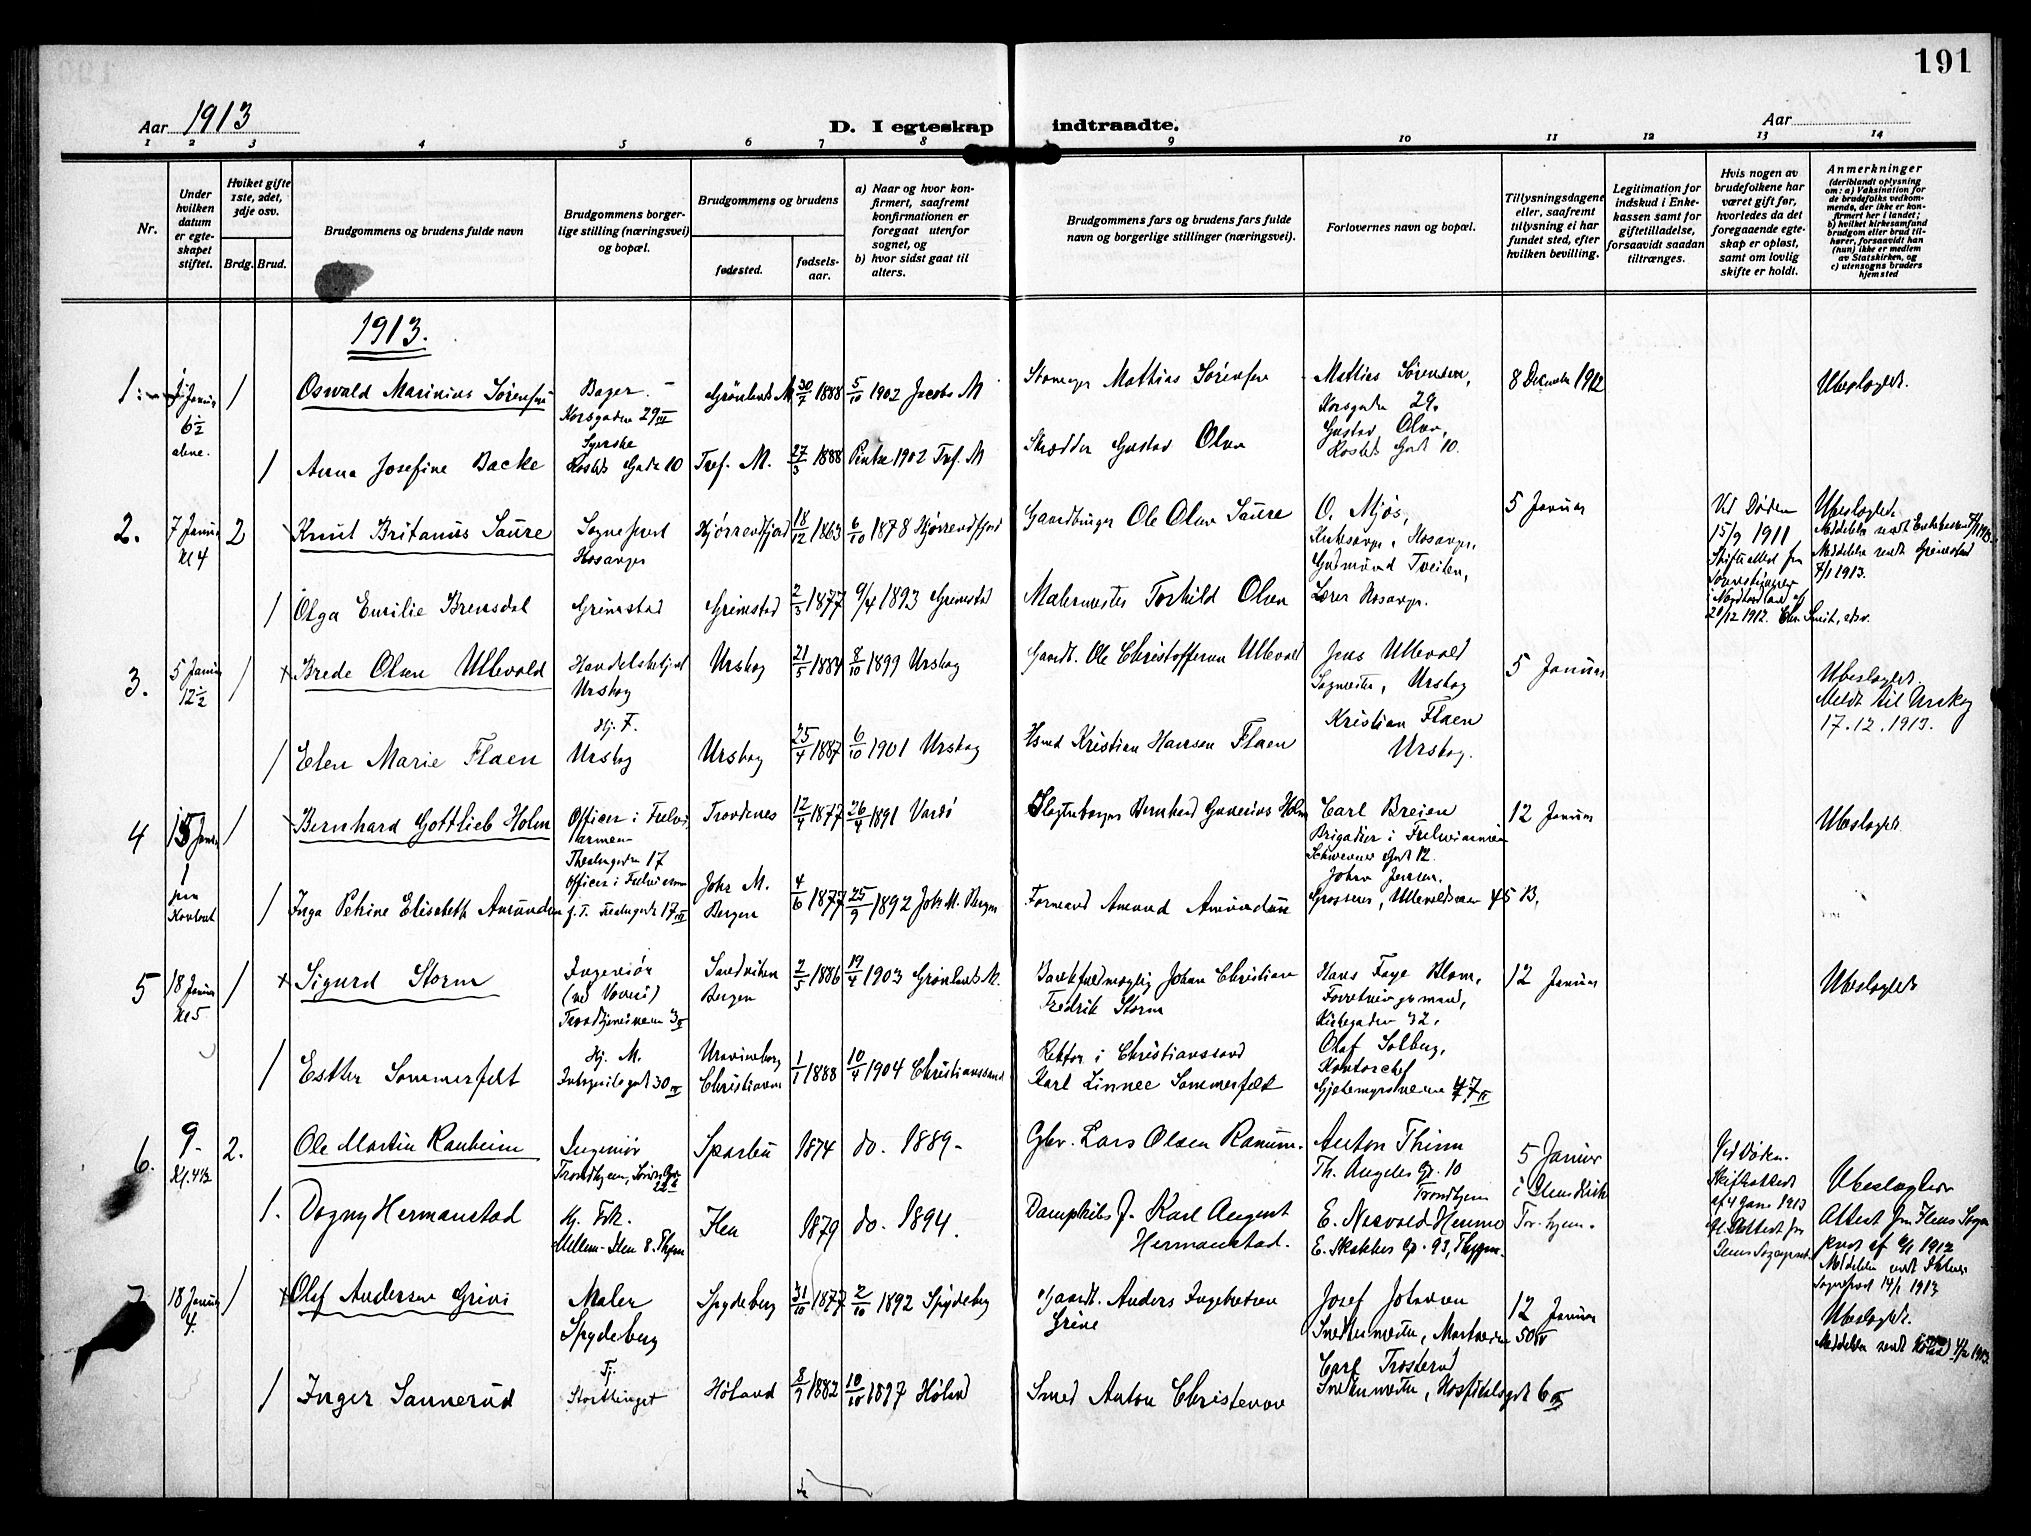 191
Aar 1913
D. I egteskap indtraadte.
Aar
1 2 3 4 5 6 7 8 9 10 11 12 13 14
Nr.
Under hvilken datum er egteskapet stiftet.
Hviket gifte 1ste, 2det, 3dje osv.
Brdg. Brud.
Brudgommens og brudens fulde navn
Brudgommens borgerlige stilling (næringsvei) og bopæl.
Brudgommens og brudens
fødested.
fødselsaar.
a) Naar og hvor konfirmert, saafremt konfirmationen er foregaat utenfor sognet, og
b) hvor sidst gaat til alters.
Brudgommens fars og brudens fars fulde navn og borgerlige stillinger (næringsvei).
Forlovernes navn og bopæl.
Tillysningsdagene eller, saafremt tillysning ei har fundet sted, efter hvilken bevilling.
Legitimation for indskud i Enkekassen samt for giftetilladelse, forsaavidt saadan tiltrænges.
Hvis nogen av brudefolkene har været gift før, hvorledes da det foregaaende egteskap er opløst, samt om lovlig skifte er holdt.
Anmerkninger
(deriblandt oplysning om: a) Vaksination for de brudefolks vedkommende, der ikke er konfirmert her i landet; b) hvilket kirkesamfund brudgom eller brud tilhører, forsaavidt han (hun) ikke er medlem av Statskirken, og c) utensogns bruders hjemsted
1913.
1. Januar 6½ alene. 1 Oswald Marinius Sørensen Bager Korsgaden 29 III Grønlands M 30/7 1888 5/10 1902 Jacobs M Mathias Sørensen Mathias Sørensen, Korsgaden 29. 8 December 1912 Ubeslægtet.
1 Anna Josefine Backe Syerske Gade 10 Tref. M. 27/3 1888 Pintse 1902 Tref. M Skrædder Gustav Olsen Gustav Olsen, Gade 10.
2. 7 Januar Kl 4 2 Knut Britanus Saure Sogneprest Hosanger Hjørrendfjord 18/12 1863 6/10 1878 Hjørrendfjord Gaardbruger Ole Olsen Saure O. Mjøs, Hosanger. 5 Januar Ved Døden 15/9 1911 Skifteattest fra Sorenskriveren i Nordhordland 28/12 1912. Ubeslægtede Meddelelse sendt Grimstad 8/1 1913.
1 Olga Emilie Brensdal Grimstad Grimstad 2/3 1877 9/4 1893 Grimstad Malermester Torkild Olsen Gudmund Tveiten, Lærer Hosanger.
3. 5 Januar 12½ 1 Brede Olsen Ullevold Handelsbetjent Urskog Urskog 21/5 1884 8/10 1899 Urskog Gaardb. Ole Christoffersen Ullevold Jens Ullevold Sagmester, Urskog 5 Januar Ubeslægtet. Meldt til Urskog 17.12.1913.
1 Elen Marie Flaen Hj. F. Urskog Urskog 25/4 1887 6/10 1901 Urskog Hsmd Kristian Hansen Flaen Kristian Flaen Urskog.
4 15 Januar 1 Bernhard Gottlieb Holm Officer i Frelsesarmeen 17 Trondenes 12/4 1877 26/4 1891 Vardø Bernhard Holm Carl Breien Brigadier i Frelsesarmeen Schweensens Gade 12. 12 Januar Ubeslægtet
1 Inga Petrine Elisabeth Amundsen Officer i Frelsesarmeen 17 III Joh. M. Bergen 4/6 1877 25/9 1892 Joh. M. Bergen Formand Amund Amundsen Johan Jensen. Grosserer, Ullevoldsveien 45 B.
5 18 Januar Kl 5 1 Sigurd Storm Ingeniør Trondhjemsveien 3 II Sandviken Bergen 2/5 1886 19/4 1903 Grønlands M. Bankfuldmægtig Johan Christian Fredrik Storm Hans Faye Blom, Forretningsmand, Kirkegaden 32. 12 Januar Ubeslægtede
1 Esther Sommerfelt Hj. M. 30 III Uranienborg Christiania 1/1 1888 10/4 1904 Christianssand Rektor i Christianssand Karl Linnee Sommerfelt Olaf Solberg, Kontorchef Gjetemyrsveien 47 II
6. 9 - Kl. 4½ 2. Ole Martin Ranheim Ingeniør Trondhjem, 22 Sparbu 1874 do. 1889- Gbr. Lars Olsen Ranum. Anton Thinn Th. Angels G. 10 Trondhjem 5 Januar i Ilens Kirke Tr.hjem. Ved Døden. Skifteattest af 4 Jan. 1913 Ubeslægtede Attest fra Ilens Sogneprest af 6/1 1913 Meddelelse sendt Ilens Sogneprest 14/1 1913
1. Dagny Hermanstad Hj. Frk. Mellem-Ilen 8. Thjem Ilen 1879 do. 1894. Dampskibsf. Karl August Hermanstad. E. Nesvold-Hemmo E. Skakkes G. 93, Thjem.
7. 18 Januar 4. 1 Olaf Andersen Grini Maler Spydeberg Spydeberg 31/10 1877 2/10 1892 Spydeberg Gaardb. Anders Ingebretsen Grine Josef Johnsen Snedkermester, 50 IV 12 Januar Ubeslægtet. Meddelelse sendt Høland 4/2 1913.
1 Inger Sannerud Tj. Storthinget Høland 8/9 1882 10/10 1897 Høland Smed Anton Christensen Carl Trosterud Snedkermester, Hospitalsgt 6 III